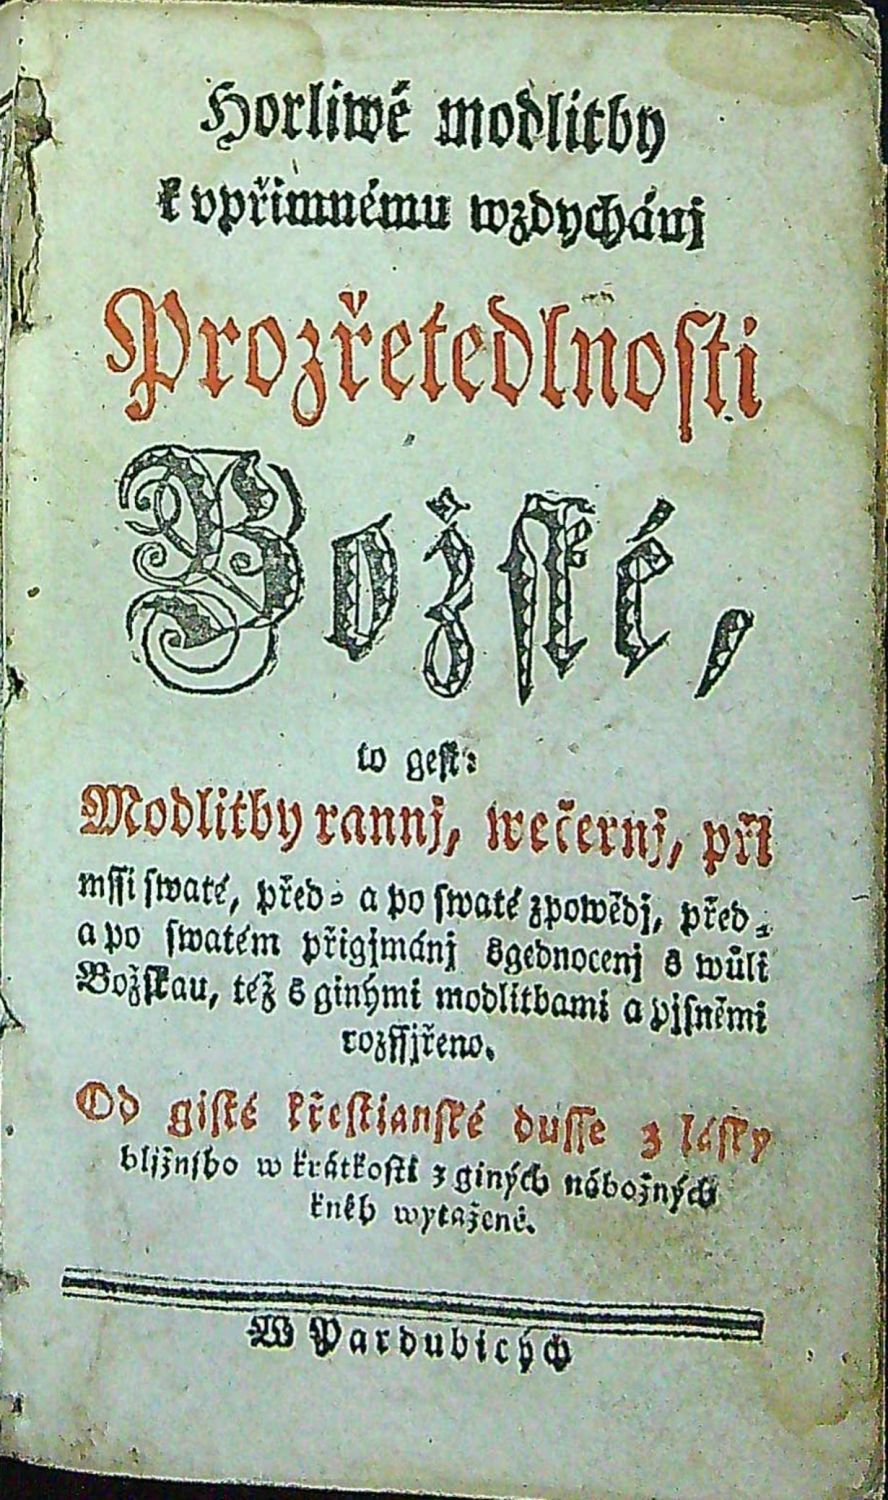 Horliwé modlitby
k vpřimnému wzdychánj
Prozřetedlnoſti
Božſké,
to geſt:
Modlitby rannj, wečernj, při
mſſi ſwaté, před- a po ſwaté zpowědj, před-
a po ſwatém přigjmánj sgednocenj s wůli
Božſkau, též s ginými modlitbami a pjſněmi
rozſſjřeno.
Od giſté křeſtianſké duſſe z láſky
bljžnjho w krátkoſti z giných nábožných
kněh wytažené.
W Pardubicých